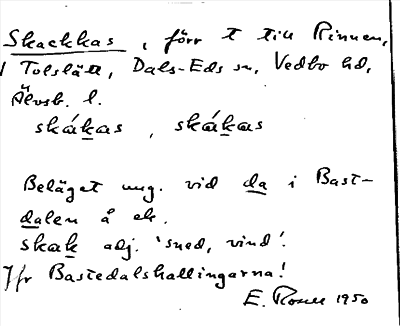 Skackkas, förr t till Rinnen,
i Tolslätt, Dals-Eds sn, Vedbo hd,
Älvsb. l.
skákas, skákas
Beläget ung. vid da i Bast-
dalen å ek.
skak adj. 'sned, vind'.
Jfr Bastedalshallingarna!
E. Rosell 1950